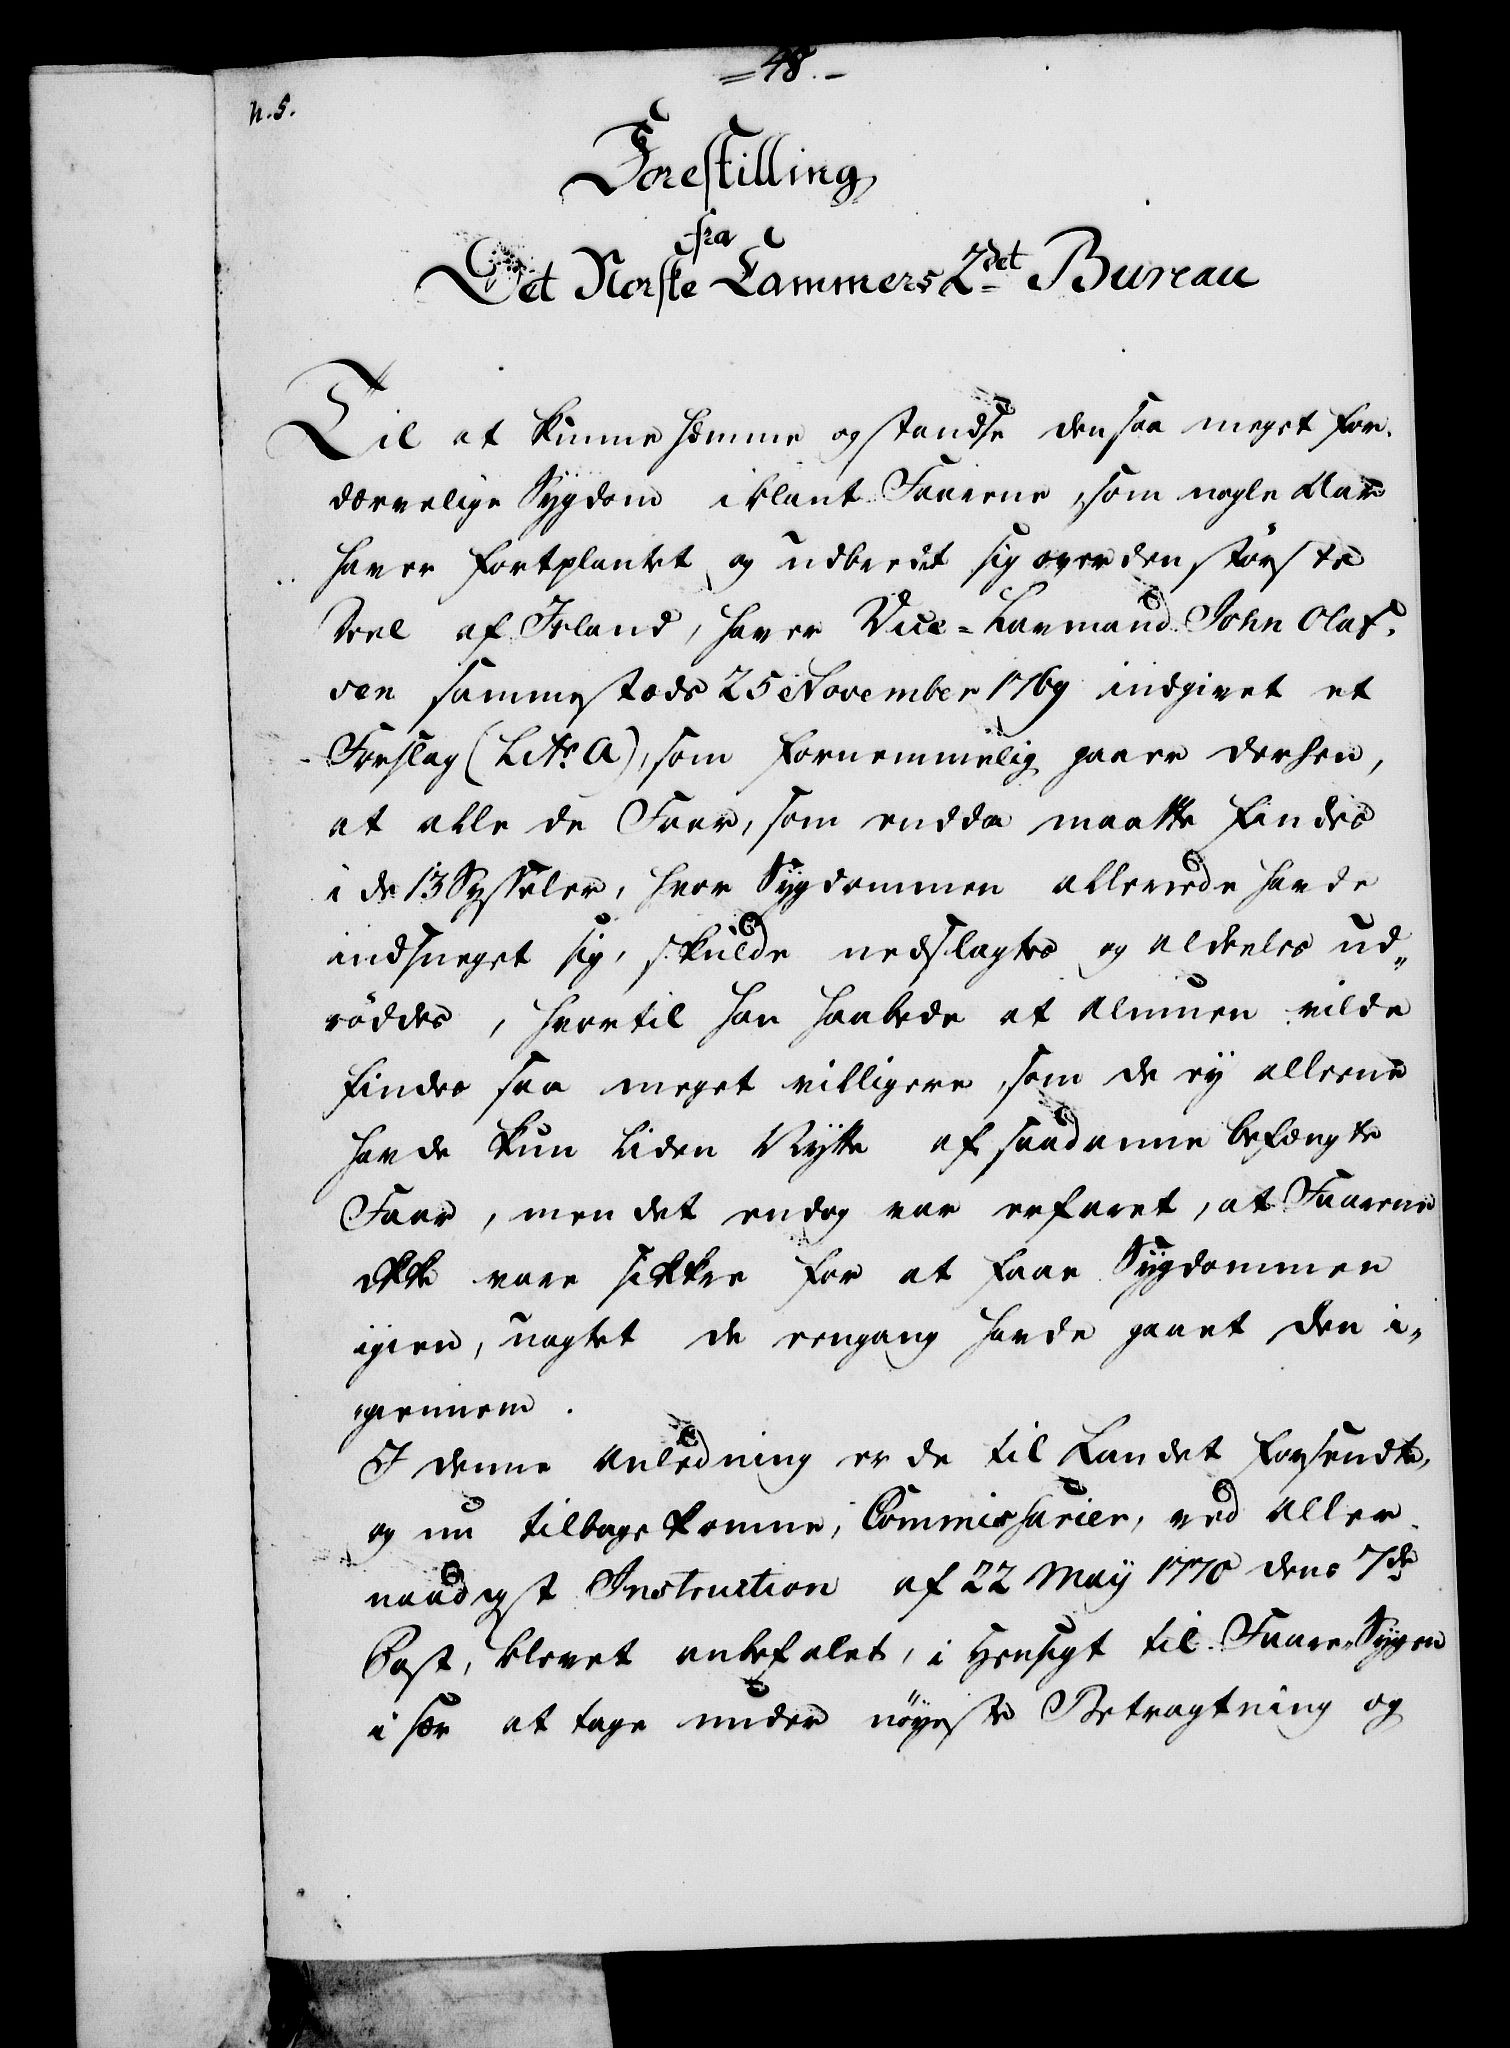 =48.-
n. 5.
Forestilling
fra
Det Norske Cammers 2det Bureau
Til at kunne hemme og standse den saa meget for-
dærvelige Sygdom iblant Faarene, som nogle Aar
haver fortplantet og udbredet sig over den störste
Deel af Island, haver Vice-Lavmand John Olaf-
sen sammestæds 25 November 1769 indgivet et
Forslag (Litr. A), som fornemmelig gaaer derhen,
at alle de Faar, som endda maatte findes
i de 13 Sysseler, hvor Sygdommen allerede havde
indsneget sig, skulde nedslagtes og aldeeles ud„
röddes, hvortil han haabede at Almuen vilde
findes saa meget villigere, som de ey alleene
havde kun liden Nytte af saadanne befængte
Faar, men det endog var erfaret, at Faarene
ikke vare sikkre for at faae Sygdommen
igien, uagtet de eengang havde gaaet den i„
„giennem.
I denne Anledning er de til Landet forsendte,
og nu tilbagekomne, Commissarier, ved Aller-
naadigst Instruction af 22 Maÿ 1770 dens 7de
Post, blevet anbefalet, i Hensigt til Faare-Sygen
i sær at tage under nöyeste Betragtning og